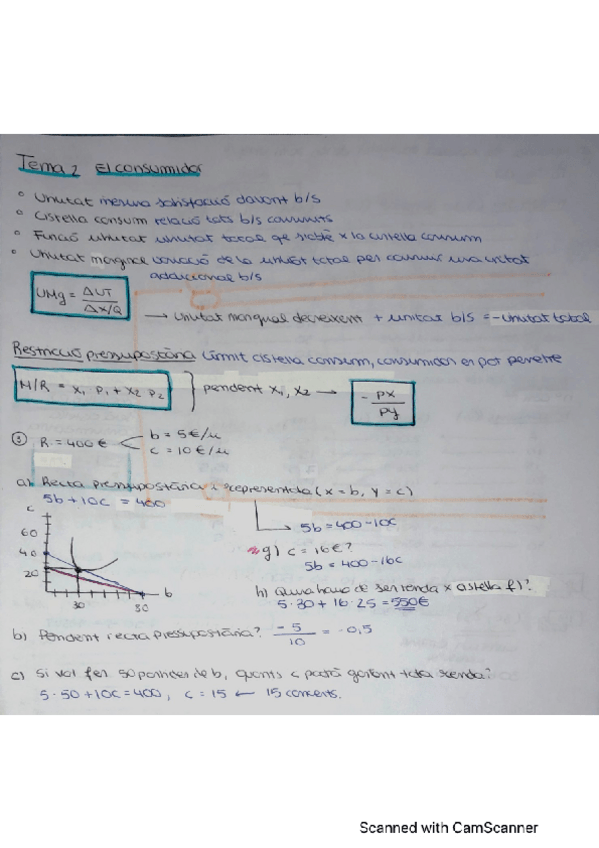 Tema 2 El consumidor
° Utilitat mesura satisfacció davant b/s
° Cistella consum relació tots b/s consumits
° Funció utilitat utilitat total que s'obté x la cistella consum
° Utilitat marginal variació de la utilitat total per consumir una unitat
addicional b/s
UMg = ΔUT / Δx/Q
→ Utilitat marginal decreixent + unitat b/s = - utilitat total
Restricció pressupostària límit cistella consum, consumidor es pot permetre
M/R = x₁ p₁ + x₂ p₂ } pendent x₁, x₂ → - px / py
① R = 400€ < b = 5€/u
c = 10€/u
a) Recta pressupostària i representa (x = b, y = c)
5b + 10c = 400
5b = 400 - 10c
c
60
40
20
30 80 b
g) c = 16€?
5b = 400 - 16c
h) Quina hauria de ser renda x cistella f)?
5·30 + 16·25 = 550€
b) Pendent recta pressupostària? -5 / 10 = -0,5
c) Si vol fer 50 de b, quants c podrà gastant tota renda?
5·50 + 10c = 400, c = 15 ← 15 concerts.
Scanned with CamScanner